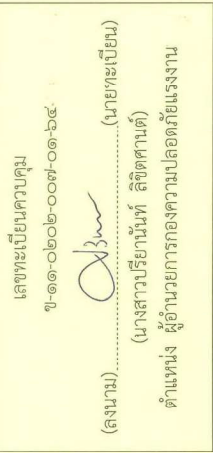 เลขทะเบียนควบคุม
ข-๑๑-๐๒๐๒-๐๐๗-๐๑-๖๔
(ลงนาม)..............................(นายทะเบียน)
(นางสาวปรียานันท์ ลิขิตศานต์)
ตำแหน่ง ผู้อำนวยการกองความปลอดภัยแรงงาน